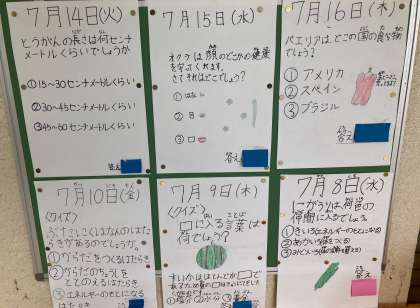 7月14日(火)
とうがんの長さは何センチ
メートルくらいでしょうか
①15〜30センチメートルくらい
②30〜45センチメートルくらい
③45〜60センチメートルくらい
答え
7月15日(水)
オクラは顔のどこかの健康
を守ってくれます。
さてそれはどこでしょう?
① はな
② 目
③ 口
答え
7月16日(木)
パエリアは、どこの国の食べ物
でしょう?
① アメリカ
② スペイン
③ ブラジル
答え
7月10日(金)
〈クイズ〉
ぶたにくにはなんのはた
らきがあるのでしょうか。
①からだをつくるはたらき
②からだのちょうしを
ととのえるはたらき
③エネルギーのもとになる
はたらき
7月9日(木)
〈クイズ〉
□に入る言葉は
何でしょう?
すいかはほとんどが□で
7月8日(水)
にがうりは、何色の
仲間に入るでしょう。
①きいろ(エネルギーのもとになる)
②あか(体をつくる)
③みどり(体の調子を整える)
答え